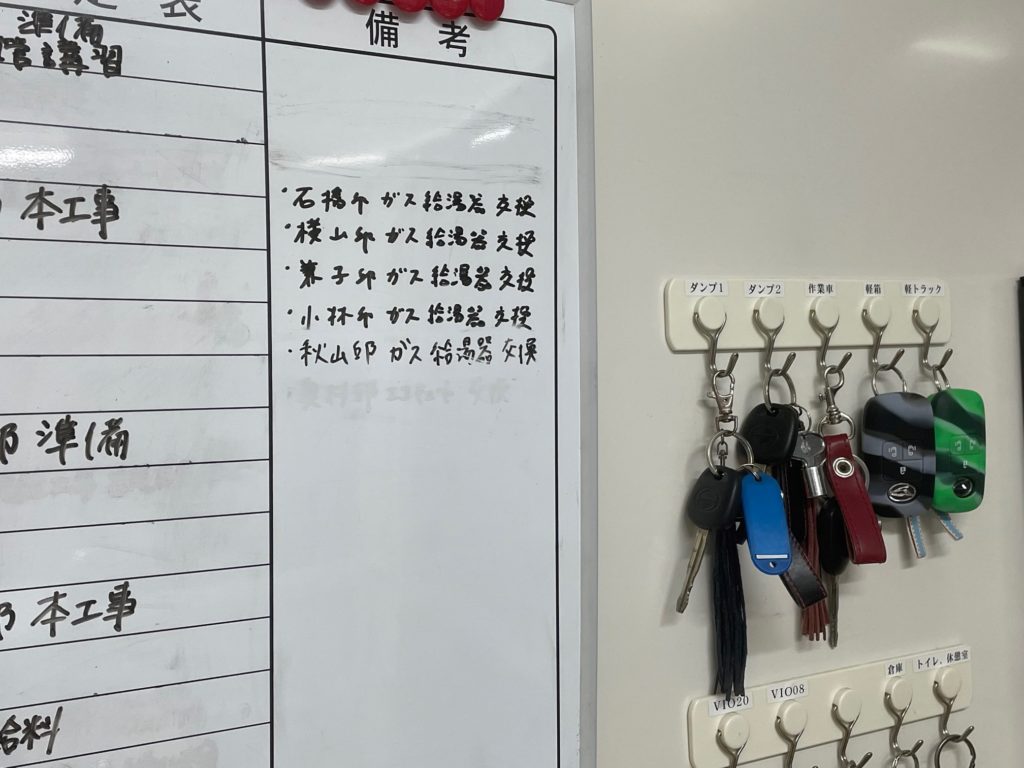 定表
備考
準備
講習
本工事
・石橋邸 ガス給湯器 交換
・横山邸 ガス給湯器 交換
・兼子邸 ガス給湯器 交換
・小林邸 ガス給湯器 交換
・秋山邸 ガス給湯器 交換
準備
本工事
給料
ダンプ1
ダンプ2
作業車
軽箱
軽トラック
VIO20
VIO08
倉庫
トイレ、休憩室